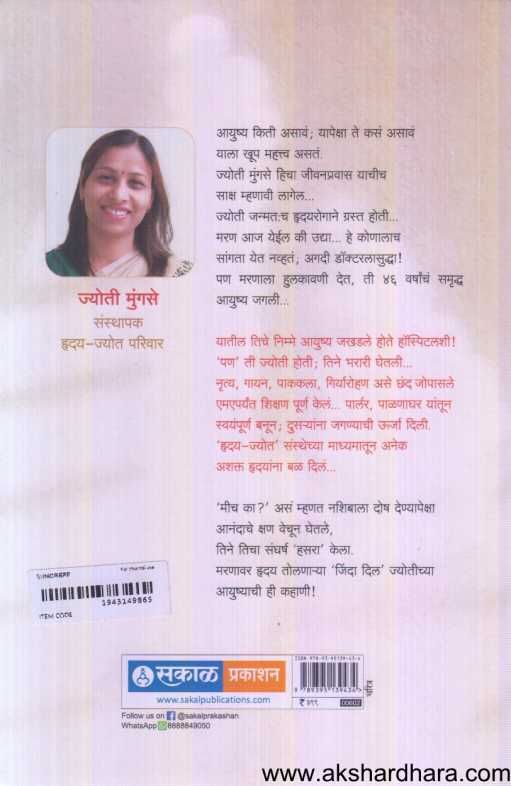 आयुष्य किती असावं; यापेक्षा ते कसं असावं
याला खूप महत्त्व असतं.
ज्योती मुंगसे हिचा जीवनप्रवास याचीच
साक्ष म्हणावी लागेल...
ज्योती जन्मतःच हृदयरोगाने ग्रस्त होती...
मरण आज येईल की उद्या... हे कोणालाच
सांगता येत नव्हतं; अगदी डॉक्टरलासुद्धा!
पण मरणाला हुलकावणी देत, ती ४६ वर्षांचं समृद्ध
आयुष्य जगली...
ज्योती मुंगसे
संस्थापक
हृदय-ज्योत परिवार
यातील तिचे निम्मे आयुष्य जखडले होते हॉस्पिटलशी!
'पण' ती ज्योती होती; तिने भरारी घेतली...
नृत्य, गायन, पाककला, गिर्यारोहण असे छंद जोपासले
एमएपर्यंत शिक्षण पूर्ण केलं... पार्लर, पाळणाघर यांतून
स्वयंपूर्ण बनून; दुसऱ्यांना जगण्याची ऊर्जा दिली.
'हृदय-ज्योत' संस्थेच्या माध्यमातून अनेक
अशक्त हृदयांना बळ दिलं...
'मीच का?' असं म्हणत नशिबाला दोष देण्यापेक्षा
आनंदाचे क्षण वेचून घेतले,
तिने तिचा संघर्ष 'हसरा' केला.
मरणावर हृदय तोलणाऱ्या 'जिंदा दिल' ज्योतीच्या
आयुष्याची ही कहाणी!
1943149865
ITEM CODE
सकाळ प्रकाशन
www.sakalpublications.com
Follow us on @sakalprakashan
WhatsApp 8888849050
₹ १९९
चरित्र
www.akshardhara.com